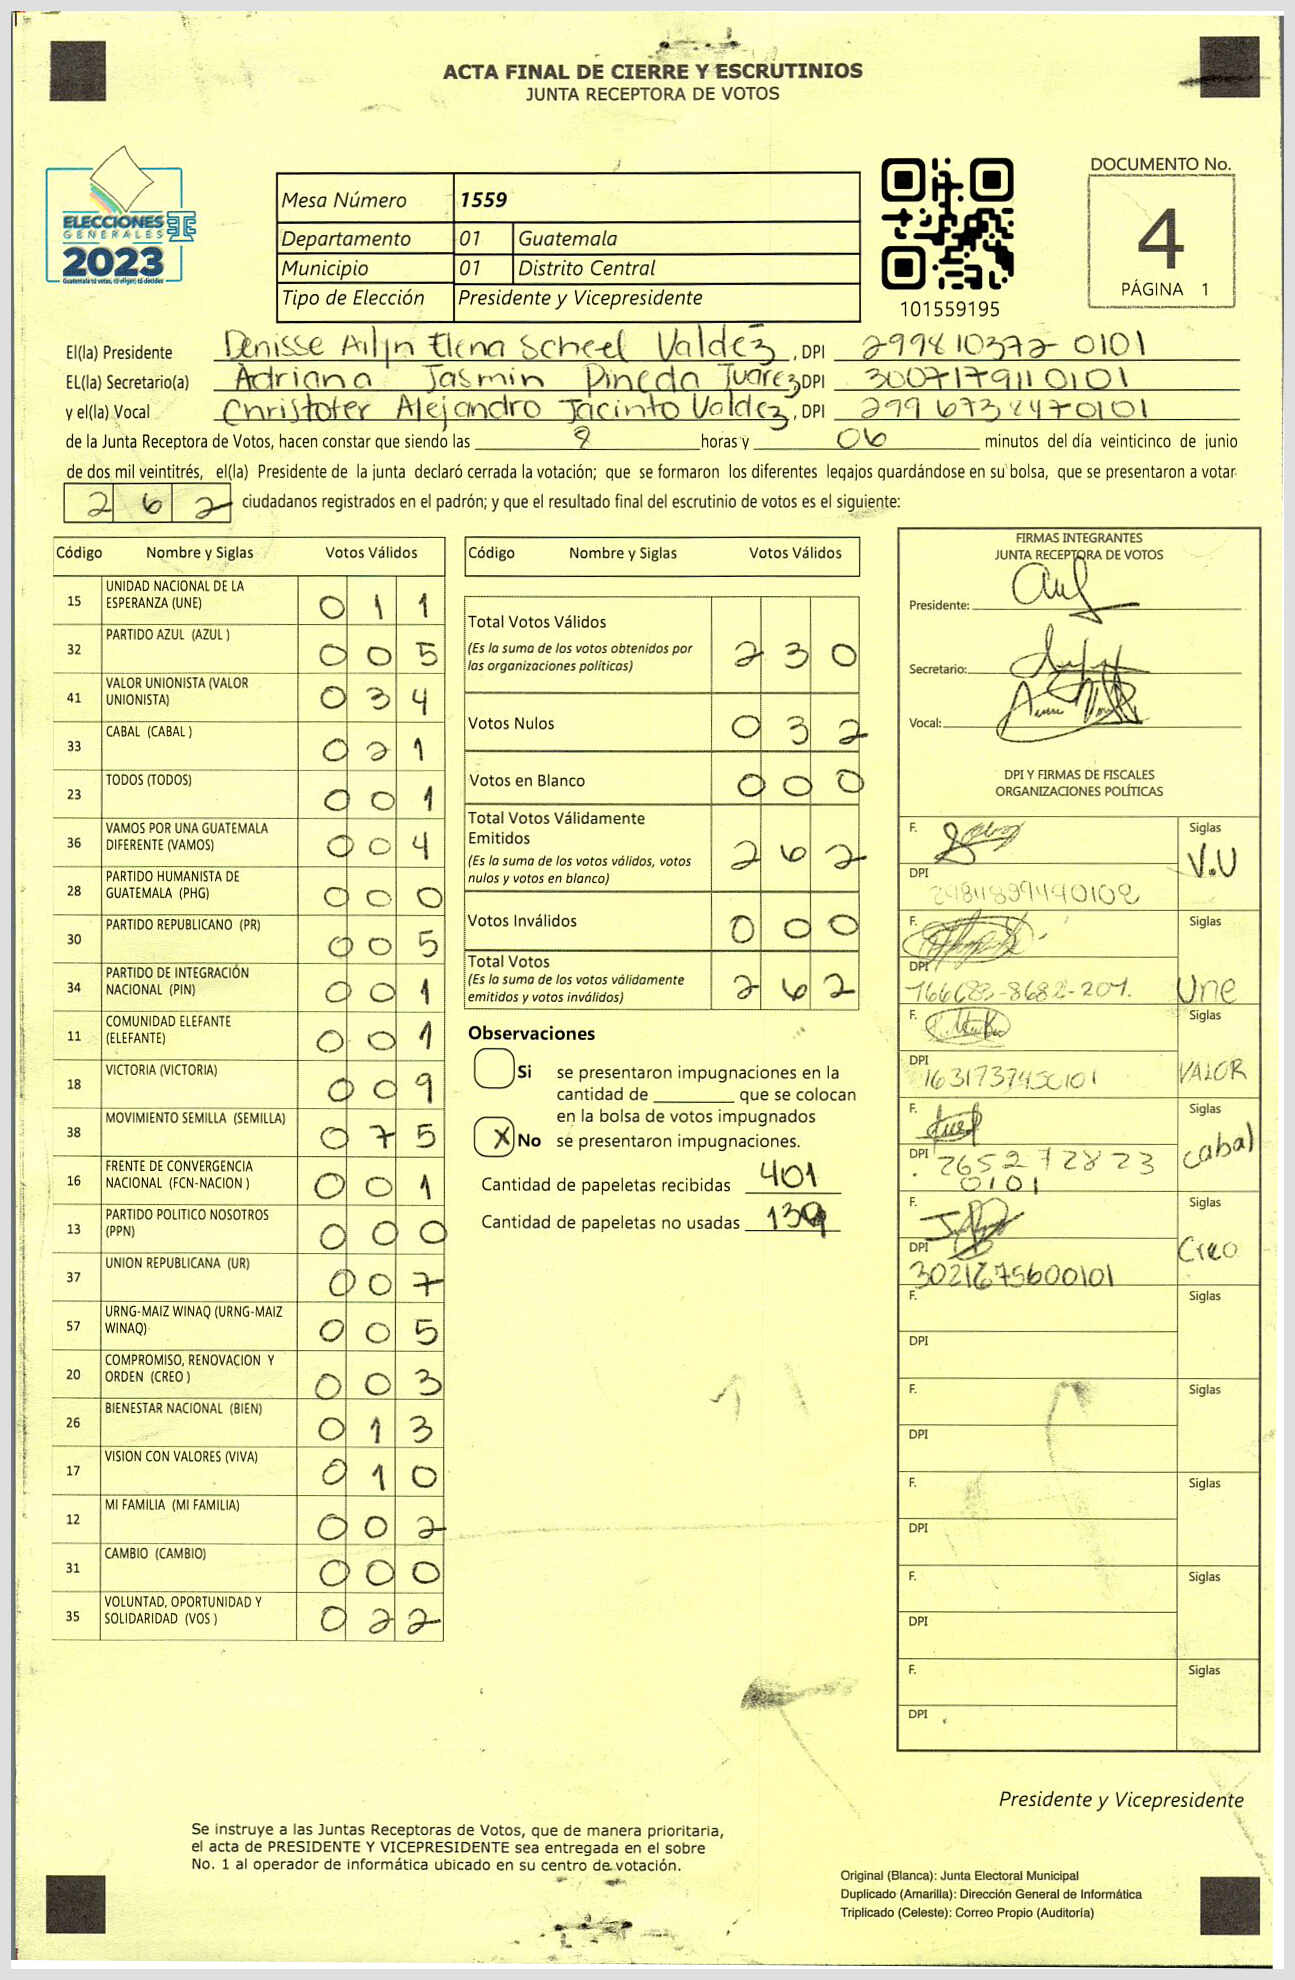 ACTA FINAL DE CIERRE Y ESCRUTINIOS
JUNTA RECEPTORA DE VOTOS
ELECCIONES
GENERALES
2023
Guatemala tú votas, tú eliges, tú decides
Mesa Número 1559
Departamento 01 Guatemala
Municipio 01 Distrito Central
Tipo de Elección Presidente y Vicepresidente
101559195
DOCUMENTO No.
4
PÁGINA 1
El(la) Presidente Denisse Ailyn Elena Scheel Valdéz, DPI 299810372 0101
EL(la) Secretario(a) Adriana Jasmin Pineda Juarez, DPI 3007179110101
y el(la) Vocal Christofer Alejandro Jacinto Valdez, DPI 2996738470101
de la Junta Receptora de Votos, hacen constar que siendo las 8 horas y 06 minutos del día veinticinco de junio
de dos mil veintitrés, el(la) Presidente de la junta declaró cerrada la votación; que se formaron los diferentes legajos guardándose en su bolsa, que se presentaron a votar
2 6 2 ciudadanos registrados en el padrón; y que el resultado final del escrutinio de votos es el siguiente:
Código Nombre y Siglas Votos Válidos
15 UNIDAD NACIONAL DE LA ESPERANZA (UNE) 0 1 1
32 PARTIDO AZUL (AZUL ) 0 0 5
41 VALOR UNIONISTA (VALOR UNIONISTA) 0 3 4
33 CABAL (CABAL ) 0 2 1
23 TODOS (TODOS) 0 0 1
36 VAMOS POR UNA GUATEMALA DIFERENTE (VAMOS) 0 0 4
28 PARTIDO HUMANISTA DE GUATEMALA (PHG) 0 0 0
30 PARTIDO REPUBLICANO (PR) 0 0 5
34 PARTIDO DE INTEGRACIÓN NACIONAL (PIN) 0 0 1
11 COMUNIDAD ELEFANTE (ELEFANTE) 0 0 1
18 VICTORIA (VICTORIA) 0 0 9
38 MOVIMIENTO SEMILLA (SEMILLA) 0 7 5
16 FRENTE DE CONVERGENCIA NACIONAL (FCN-NACION ) 0 0 1
13 PARTIDO POLITICO NOSOTROS (PPN) 0 0 0
37 UNION REPUBLICANA (UR) 0 0 7
57 URNG-MAIZ WINAQ (URNG-MAIZ WINAQ) 0 0 5
20 COMPROMISO, RENOVACION Y ORDEN (CREO ) 0 0 3
26 BIENESTAR NACIONAL (BIEN) 0 1 3
17 VISION CON VALORES (VIVA) 0 1 0
12 MI FAMILIA (MI FAMILIA) 0 0 2
31 CAMBIO (CAMBIO) 0 0 0
35 VOLUNTAD, OPORTUNIDAD Y SOLIDARIDAD (VOS ) 0 2 2
Código Nombre y Siglas Votos Válidos
Total Votos Válidos 2 3 0
(Es la suma de los votos obtenidos por
las organizaciones políticas)
Votos Nulos 0 3 2
Votos en Blanco 0 0 0
Total Votos Válidamente
Emitidos 2 6 2
(Es la suma de los votos válidos, votos
nulos y votos en blanco)
Votos Inválidos 0 0 0
Total Votos 2 6 2
(Es la suma de los votos válidamente
emitidos y votos inválidos)
Observaciones
Si se presentaron impugnaciones en la
cantidad de ________ que se colocan
en la bolsa de votos impugnados
X No se presentaron impugnaciones.
Cantidad de papeletas recibidas 401
Cantidad de papeletas no usadas 139
FIRMAS INTEGRANTES
JUNTA RECEPTORA DE VOTOS
Presidente:
Secretario:
Vocal:
DPI Y FIRMAS DE FISCALES
ORGANIZACIONES POLÍTICAS
F. Siglas
V.U
DPI
F. Siglas
DPI Une
F. Siglas
DPI VALOR
1631737450101
F. Siglas
DPI 2652 72823 Cabal
0101
F. Siglas
DPI Creo
3021675600101
F. Siglas
DPI
F. Siglas
DPI
F. Siglas
DPI
F. Siglas
DPI
F. Siglas
DPI
Presidente y Vicepresidente
Se instruye a las Juntas Receptoras de Votos, que de manera prioritaria,
el acta de PRESIDENTE Y VICEPRESIDENTE sea entregada en el sobre
No. 1 al operador de informática ubicado en su centro de votación.
Original (Blanca): Junta Electoral Municipal
Duplicado (Amarilla): Dirección General de Informática
Triplicado (Celeste): Correo Propio (Auditoría)